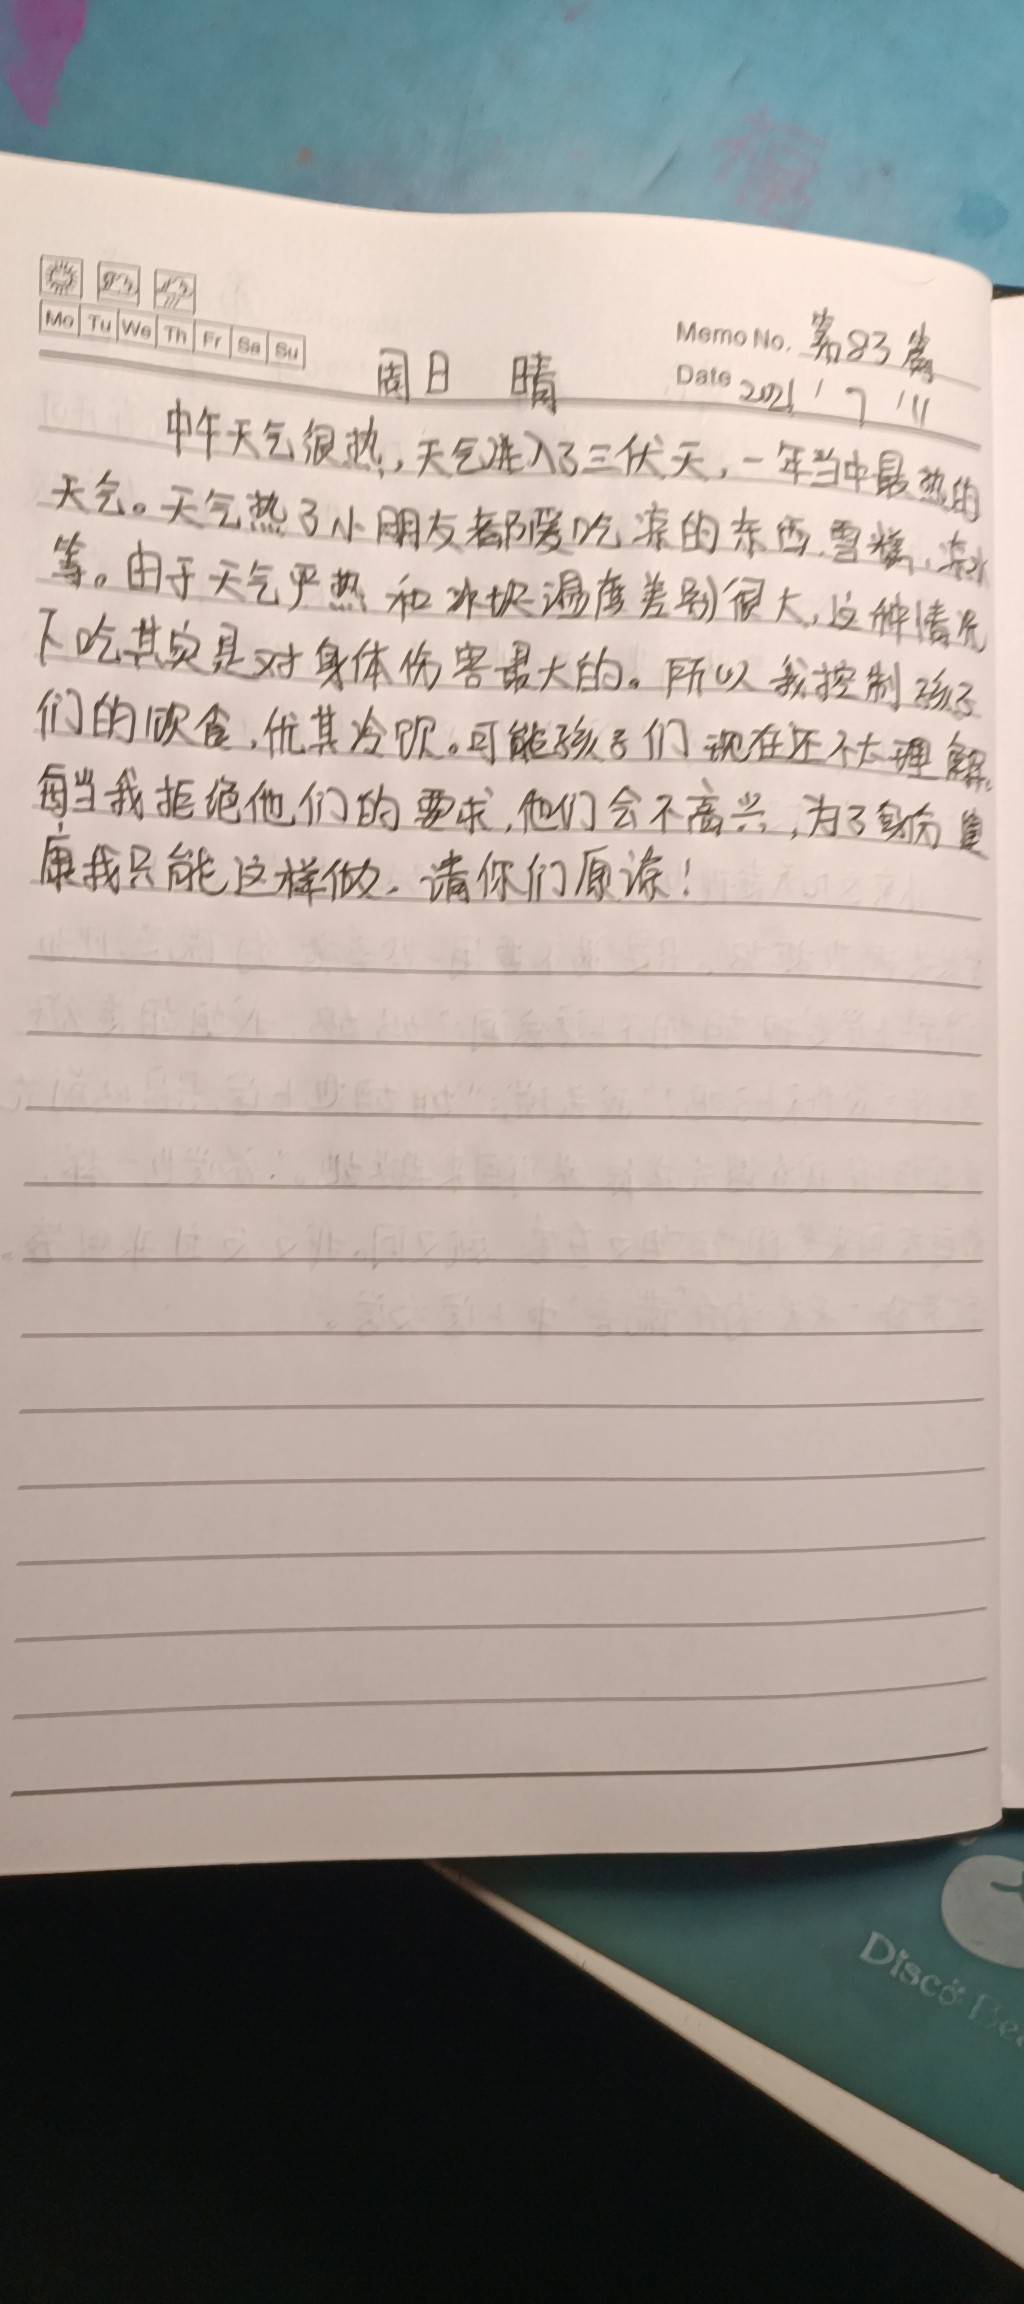 Mo Tu We Th Fr Sa Su
Memo No. 第83篇
Date 2021 / 7 / 11
周日 晴
中午天气很热,天气进入了三伏天,一年当中最热的
天气。天气热了小朋友都爱吃凉的东西.雪糕、冻冰
等。由于天气严热 和冰块温度差别很大,这种情况
下吃其实是对身体伤害最大的。所以我控制孩子
们的饮食,优其冷饮。可能孩子们现在还不太理解.
每当我拒绝他们的要求,他们会不高兴,为了
康我只能这样做.请你们原谅!
Disco